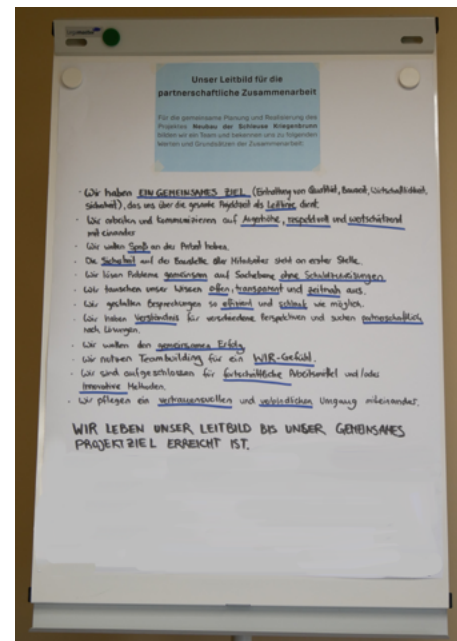 Unser Leitbild für die
partnerschaftliche Zusammenarbeit
Für die gemeinsame Planung und Realisierung des
Projektes Neubau der Schleuse Kriegenbrunn
bilden wir ein Team und bekennen uns zu folgenden
Werten und Grundsätzen der Zusammenarbeit:
· Wir haben EIN GEMEINSAMES ZIEL (Einhaltung von Qualität, Bauzeit, Wirtschaftlichkeit,
Sicherheit), das uns über die gesamte Projektzeit als Leitlinie dient.
· Wir arbeiten und kommunizieren auf Augenhöhe, respektvoll und wertschätzend
mit einander
· Wir wollen Spaß an der Arbeit haben.
· Die Sicherheit auf der Baustelle aller Mitarbeiter steht an erster Stelle.
· Wir lösen Probleme gemeinsam auf Sachebene ohne Schuldzuweisungen.
· Wir tauschen unser Wissen offen, transparent und zeitnah aus.
· Wir gestalten Besprechungen so effizient und schlank wie möglich.
· Wir haben Verständnis für verschiedene Perspektiven und suchen partnerschaftlich
nach Lösungen.
· Wir wollen den gemeinsamen Erfolg
· Wir nutzen Teambuilding für ein WIR-Gefühl.
· Wir sind aufgeschlossen für fortschrittliche Arbeitsmittel und/oder
innovative Methoden.
· Wir pflegen ein vertrauensvollen und verbindlichen Umgang miteinander.
WIR LEBEN UNSER LEITBILD BIS UNSER GEMEINSAMES
PROJEKTZIEL ERREICHT IST.